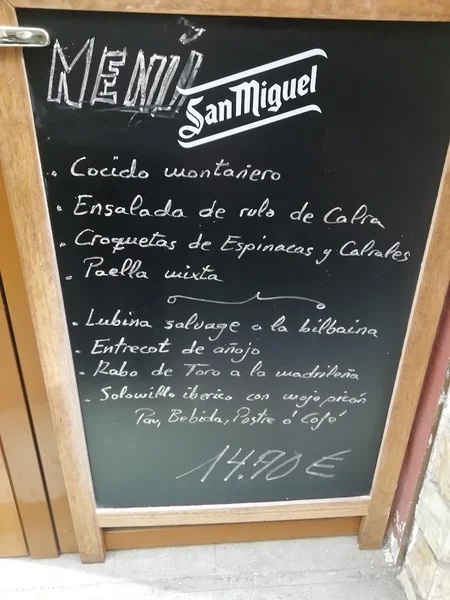 MENÚ
San Miguel
. Cocido montañero
. Ensalada de rulo de Cabra
. Croquetas de Espinacas y Cabrales
. Paella mixta
. Lubina salvage a la bilbaina
. Entrecot de añojo
. Rabo de Toro a la madrileña
. Solomillo iberico con mojo picón
Pan, Bebida, Postre ó Café
14.90 €